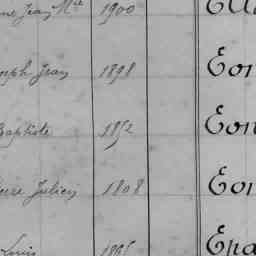 Jean Mie 1900
Joseph Jean 1898 Eon
Baptiste 1852 Eon
Pierre Julien 1808 Eon
Louis 1865